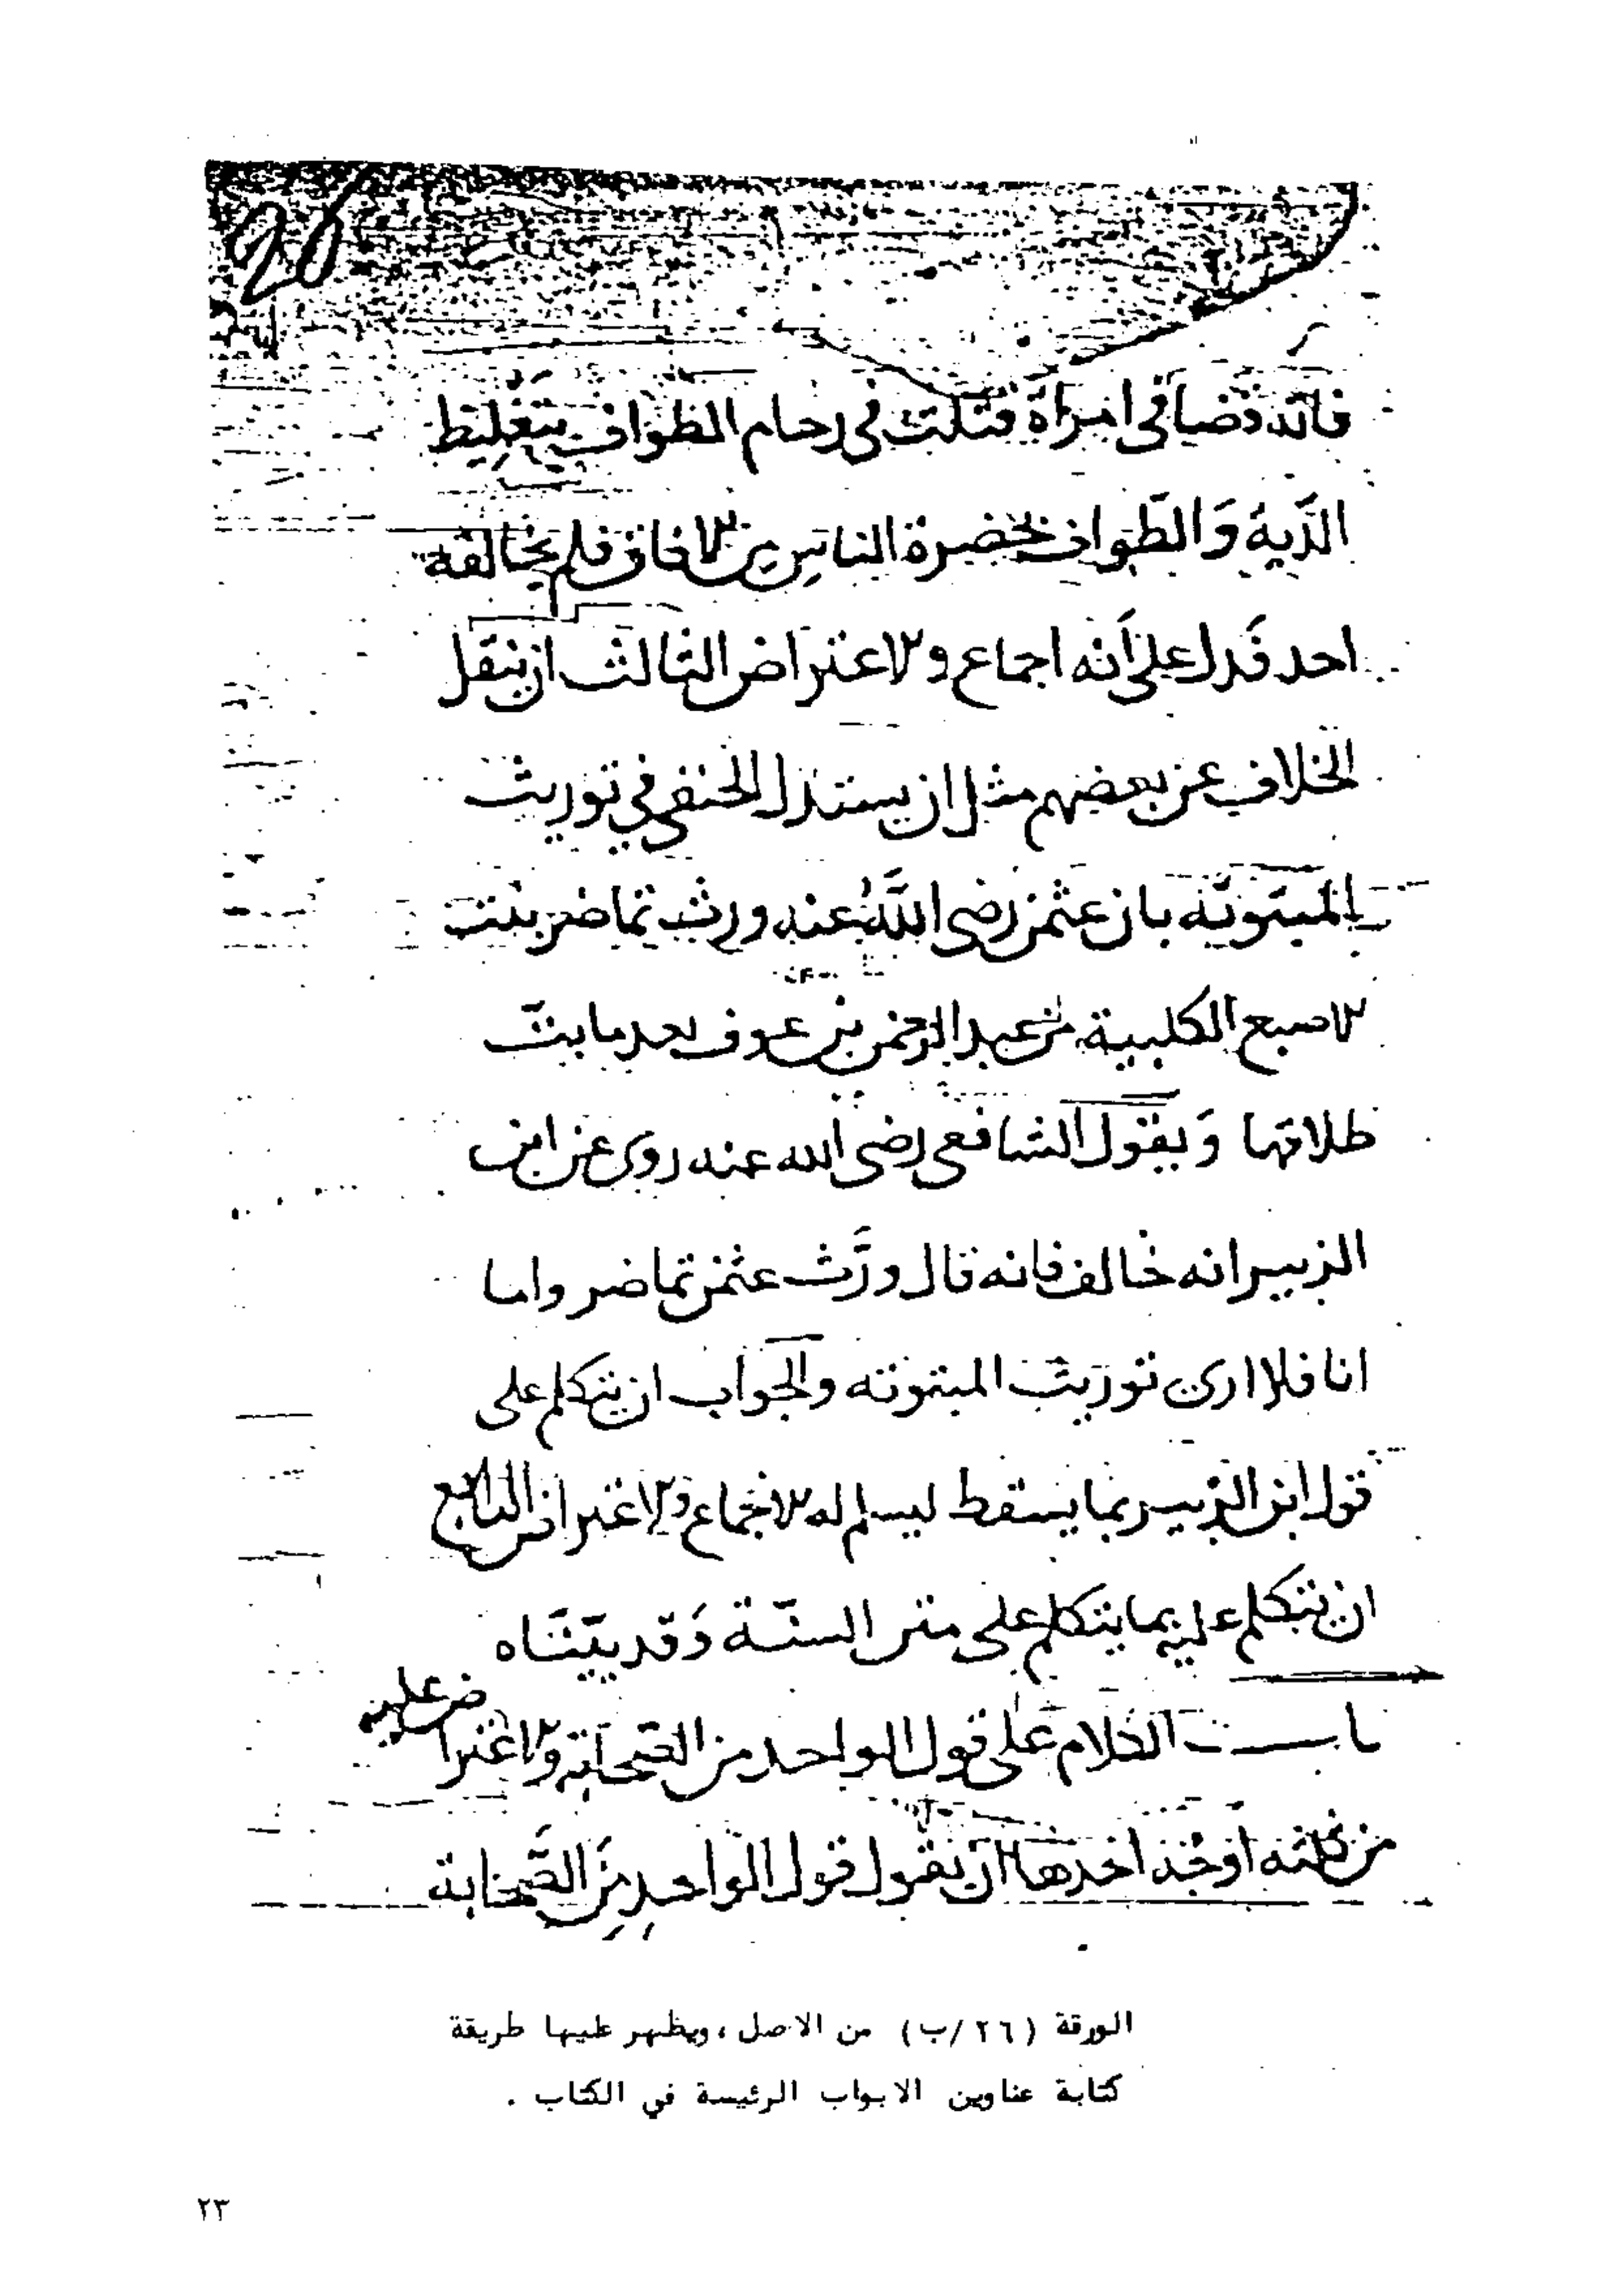 26
فانه قضا في امرأة قتلت في زحام الطواف بتغليظ
الدّية وَالطّواف بحضرة الناس من الافاق فلم يخالفه
احد فَدل على أنه اجماع والاعتراض الثالث ان ينقل
الخلاف عن بعضهم مثل ان يستدل الحنفي في توريث
المبتوتة بان عثمن رضى اللَّه عنه ورث تماضر بنت
الاصبع الكلبية من عبد الرحمن بن عوف بعد ما بتّ
طلاقها وَيقول الشافعى رضى الله عنه روى عن ابن
الزبير انه خالف فانه قال ورَّث عثمن تماضر واما
انا فلا ارى توريث المبتوته والجواب ان يتكلم على
قول ابن الزبير بما يسقط ليسلم له الاجماع والاعتراض الرابع
ان يتكلم عليه بما يتكلم على متن السنّة وَقد بيّنّاه
باب الكلام على قول الواحد من الصّحابة والاعتراض عليه
من ثلثه أوجُه احدها ان يقول قول الواحدِ مِنَ الصَّحابة
الورقة (٢٦/ب) من الاصل ، ويظهر عليها طريقة
كتابة عناوين الابواب الرئيسة في الكتاب .
٢٣